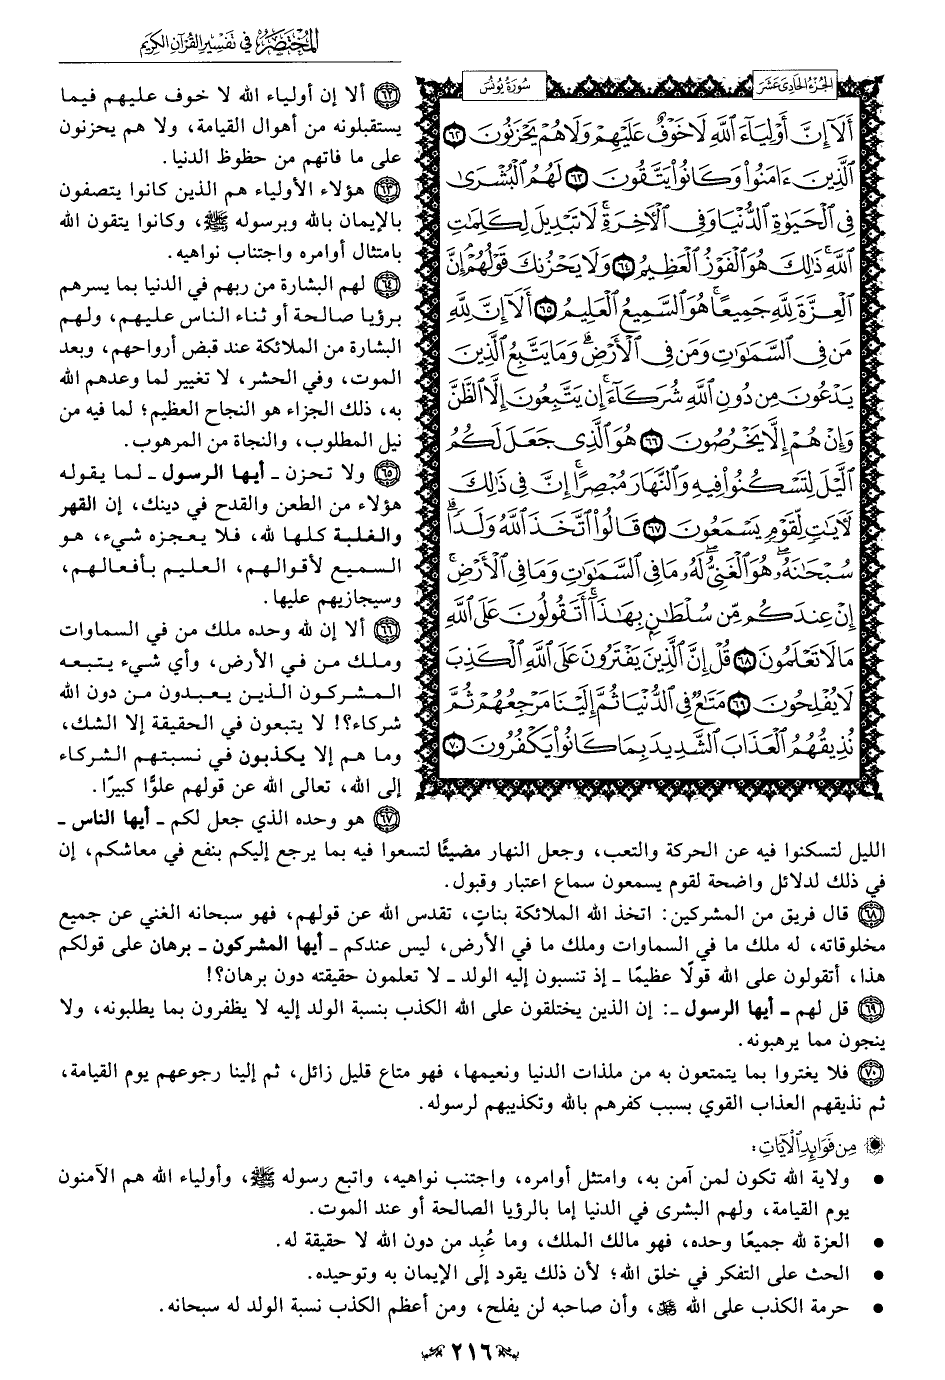 المختصر في تفسير القرآن الكريم
الجزء الحادي عشر
سورة يونس
أَلَآ إِنَّ أَوْلِيَآءَ ٱللَّهِ لَا خَوْفٌ عَلَيْهِمْ وَلَا هُمْ يَحْزَنُونَ ٦٢
ٱلَّذِينَ ءَامَنُوا۟ وَكَانُوا۟ يَتَّقُونَ ٦٣ لَهُمُ ٱلْبُشْرَىٰ
فِى ٱلْحَيَوٰةِ ٱلدُّنْيَا وَفِى ٱلْءَاخِرَةِ ۚ لَا تَبْدِيلَ لِكَلِمَٰتِ
ٱللَّهِ ۚ ذَٰلِكَ هُوَ ٱلْفَوْزُ ٱلْعَظِيمُ ٦٤ وَلَا يَحْزُنكَ قَوْلُهُمْ ۘ إِنَّ
ٱلْعِزَّةَ لِلَّهِ جَمِيعًا ۚ هُوَ ٱلسَّمِيعُ ٱلْعَلِيمُ ٦٥ أَلَآ إِنَّ لِلَّهِ
مَن فِى ٱلسَّمَٰوَٰتِ وَمَن فِى ٱلْأَرْضِ ۗ وَمَا يَتَّبِعُ ٱلَّذِينَ
يَدْعُونَ مِن دُونِ ٱللَّهِ شُرَكَآءَ ۚ إِن يَتَّبِعُونَ إِلَّا ٱلظَّنَّ
وَإِنْ هُمْ إِلَّا يَخْرُصُونَ ٦٦ هُوَ ٱلَّذِى جَعَلَ لَكُمُ
ٱلَّيْلَ لِتَسْكُنُوا۟ فِيهِ وَٱلنَّهَارَ مُبْصِرًا ۚ إِنَّ فِى ذَٰلِكَ
لَءَايَٰتٍ لِّقَوْمٍ يَسْمَعُونَ ٦٧ قَالُوا۟ ٱتَّخَذَ ٱللَّهُ وَلَدًا ۗ
سُبْحَٰنَهُۥ ۖ هُوَ ٱلْغَنِىُّ ۖ لَهُۥ مَا فِى ٱلسَّمَٰوَٰتِ وَمَا فِى ٱلْأَرْضِ ۚ
إِنْ عِندَكُم مِّن سُلْطَٰنٍۭ بِهَٰذَآ ۚ أَتَقُولُونَ عَلَى ٱللَّهِ
مَا لَا تَعْلَمُونَ ٦٨ قُلْ إِنَّ ٱلَّذِينَ يَفْتَرُونَ عَلَى ٱللَّهِ ٱلْكَذِبَ
لَا يُفْلِحُونَ ٦٩ مَتَٰعٌ فِى ٱلدُّنْيَا ثُمَّ إِلَيْنَا مَرْجِعُهُمْ ثُمَّ
نُذِيقُهُمُ ٱلْعَذَابَ ٱلشَّدِيدَ بِمَا كَانُوا۟ يَكْفُرُونَ ٧٠
٦٢ ألا إن أولياء الله لا خوف عليهم فيما
يستقبلونه من أهوال القيامة، ولا هم يحزنون
على ما فاتهم من حظوظ الدنيا.
٦٣ هؤلاء الأولياء هم الذين كانوا يتصفون
بالإيمان بالله وبرسوله ﷺ، وكانوا يتقون الله
بامتثال أوامره واجتناب نواهيه.
٦٤ لهم البشارة من ربهم في الدنيا بما يسرهم
برؤيا صالحة أو ثناء الناس عليهم، ولهم
البشارة من الملائكة عند قبض أرواحهم، وبعد
الموت، وفي الحشر، لا تغيير لما وعدهم الله
به، ذلك الجزاء هو النجاح العظيم؛ لما فيه من
نيل المطلوب، والنجاة من المرهوب.
٦٥ ولا تحزن ـ أيها الرسول ـ لما يقوله
هؤلاء من الطعن والقدح في دينك، إن القهر
والغلبة كلها لله، فلا يعجزه شيء، هو
السميع لأقوالهم، العليم بأفعالهم،
وسيجازيهم عليها.
٦٦ ألا إن لله وحده ملك من في السماوات
وملك من في الأرض، وأي شيء يتبعه
المشركون الذين يعبدون من دون الله
شركاء؟! لا يتبعون في الحقيقة إلا الشك،
وما هم إلا يكذبون في نسبتهم الشركاء
إلى الله، تعالى الله عن قولهم علوًّا كبيرًا.
٦٧ هو وحده الذي جعل لكم ـ أيها الناس ـ
الليل لتسكنوا فيه عن الحركة والتعب، وجعل النهار مضيئًا لتسعوا فيه بما يرجع إليكم بنفع في معاشكم، إن
في ذلك لدلائل واضحة لقوم يسمعون سماع اعتبار وقبول.
٦٨ قال فريق من المشركين: اتخذ الله الملائكة بناتٍ، تقدس الله عن قولهم، فهو سبحانه الغني عن جميع
مخلوقاته، له ملك ما في السماوات وملك ما في الأرض، ليس عندكم ـ أيها المشركون ـ برهان على قولكم
هذا، أتقولون على الله قولًا عظيمًا ـ إذ تنسبون إليه الولد ـ لا تعلمون حقيقته دون برهان؟!
٦٩ قل لهم ـ أيها الرسول ـ: إن الذين يختلقون على الله الكذب بنسبة الولد إليه لا يظفرون بما يطلبونه، ولا
ينجون مما يرهبونه.
٧٠ فلا يغتروا بما يتمتعون به من ملذات الدنيا ونعيمها، فهو متاع قليل زائل، ثم إلينا رجوعهم يوم القيامة،
ثم نذيقهم العذاب القوي بسبب كفرهم بالله وتكذيبهم لرسوله.
من فوائد الآيات:
• ولاية الله تكون لمن آمن به، وامتثل أوامره، واجتنب نواهيه، واتبع رسوله ﷺ، وأولياء الله هم الآمنون
يوم القيامة، ولهم البشرى في الدنيا إما بالرؤيا الصالحة أو عند الموت.
• العزة لله جميعًا وحده، فهو مالك الملك، وما عُبِد من دون الله لا حقيقة له.
• الحث على التفكر في خلق الله؛ لأن ذلك يقود إلى الإيمان به وتوحيده.
• حرمة الكذب على الله ﷻ، وأن صاحبه لن يفلح، ومن أعظم الكذب نسبة الولد له سبحانه.
٢١٦